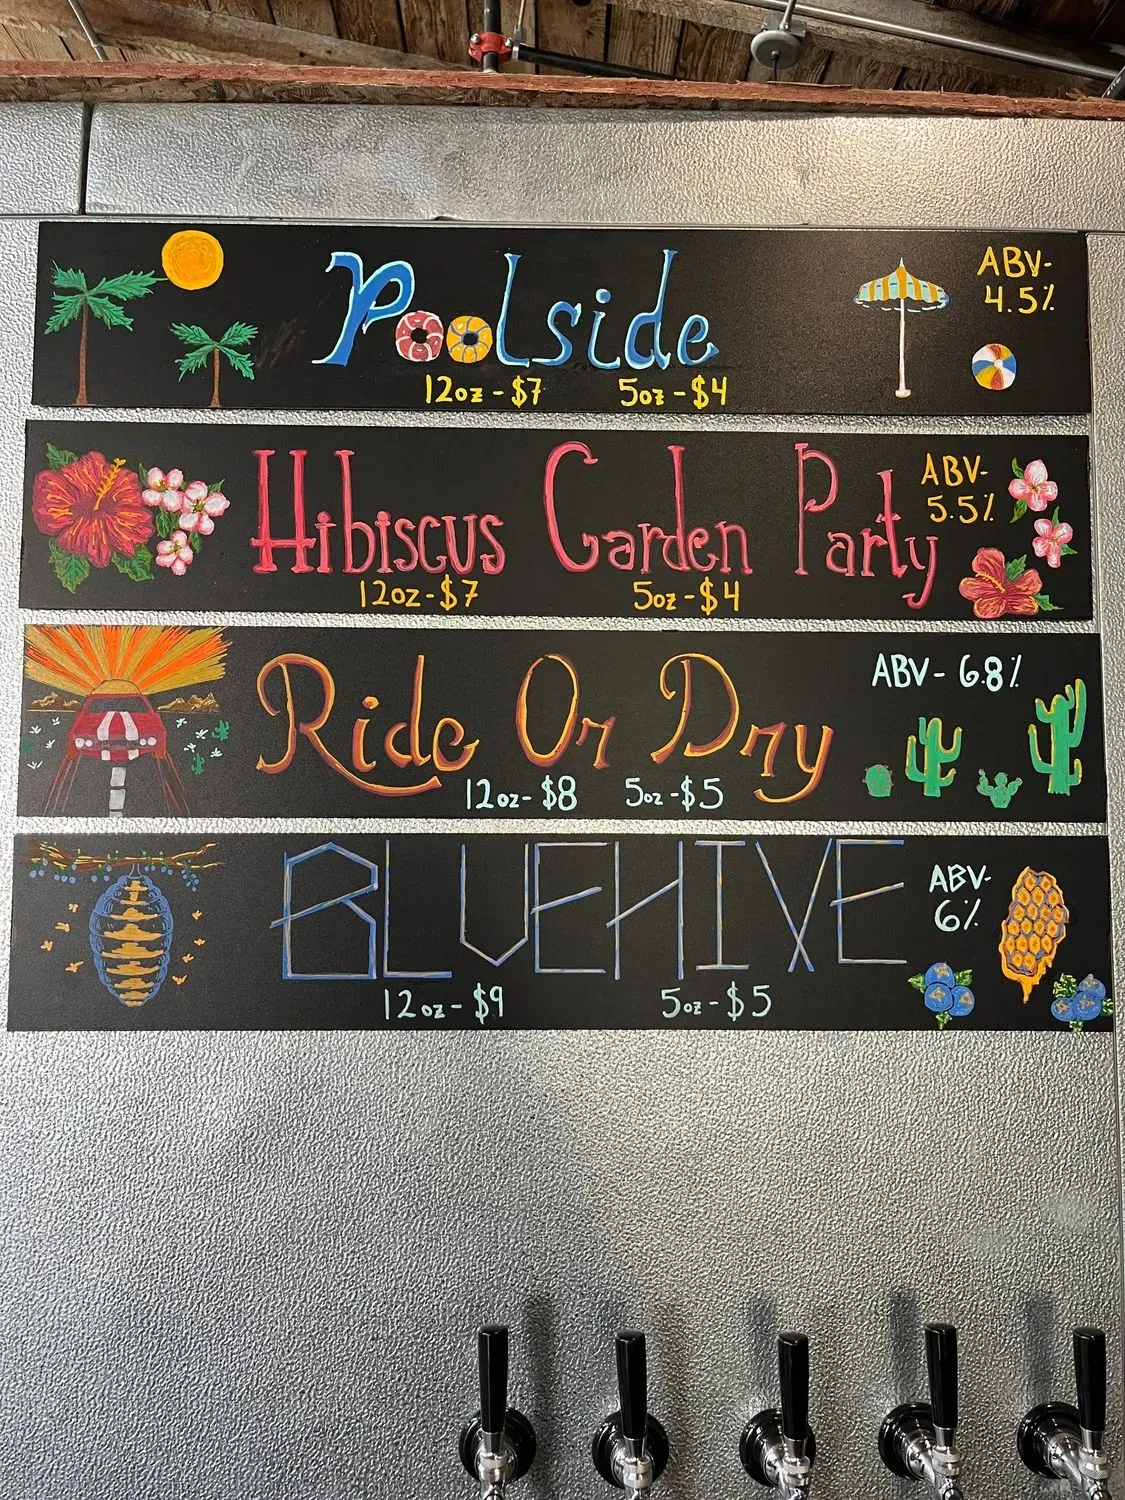 Poolside
ABV-
4.5%
12oz-$7 5oz-$4
Hibiscus Garden Party
ABV-
5.5%
12oz-$7 5oz-$4
Ride Or Dry
ABV-6.8%
12oz-$8 5oz-$5
BLUEHIVE
ABV-
6%
12oz-$9 5oz-$5